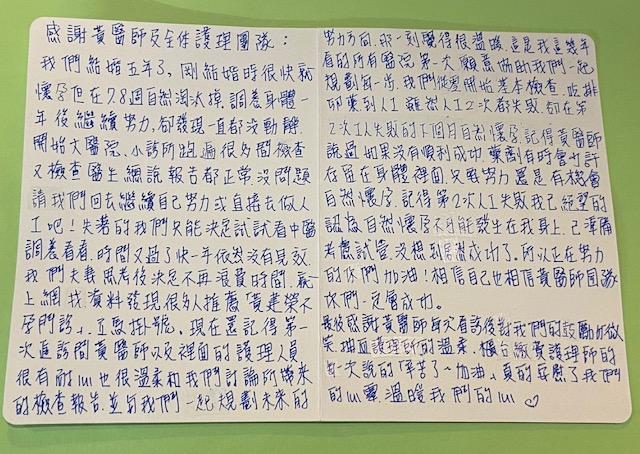 感謝黃醫師及全体護理團隊：
我們結婚五年了，剛結婚時很快就
懷孕但在7.8週自然淘汰掉,調養身體一
年後繼續努力,卻發現一直都沒動靜.
開始大醫院、小診所跑遍很多間檢查
又檢查醫生總說報告都正常沒問題
請我們回去繼續自己努力或直接去做人
工吧！失落的我們只能決定試試看中醫
調養看看.時間又過了快一年依然沒有見效.
我們夫妻思考後決定不再浪費時間.就
上網找資料發現很多人推薦「黃建榮不
孕門診」.立馬掛號。現在還記得第一
次進診間黃醫師以及裡面的護理人員
很有耐心也很溫柔和我們討論所帶來
的檢查報告.並与我們一起規劃未來的
努力方向.那一刻覺得很溫暖.這是我這幾年
看的所有醫院第一次願意協助我們一起
規劃每一步.我們從零開始基本檢查.吃排
卵藥到人工雖然人工2次都失敗.卻在第
2次人工失敗的下個月自然懷孕.記得黃醫師
說過如果沒有順利成功.藥劑有時會也許
存留在身體裡面.只要努力還是有機會
自然懷孕.記得第2次人工失敗我已經絕望的
認為自然懷孕不可能發生在我身上.已準備
考慮試管.沒想到成功了。所以正在努力
的你們加油！相信自己也相信黃醫師團隊
你們一定會成功。
最後感謝黃醫師每次看診後對我們的鼓勵加微
笑.抽血護理師的溫柔.櫃台繳費護理師的
每一次說的「辛苦了~加油」真的安慰了我們
的心靈.溫暖我們的心♡